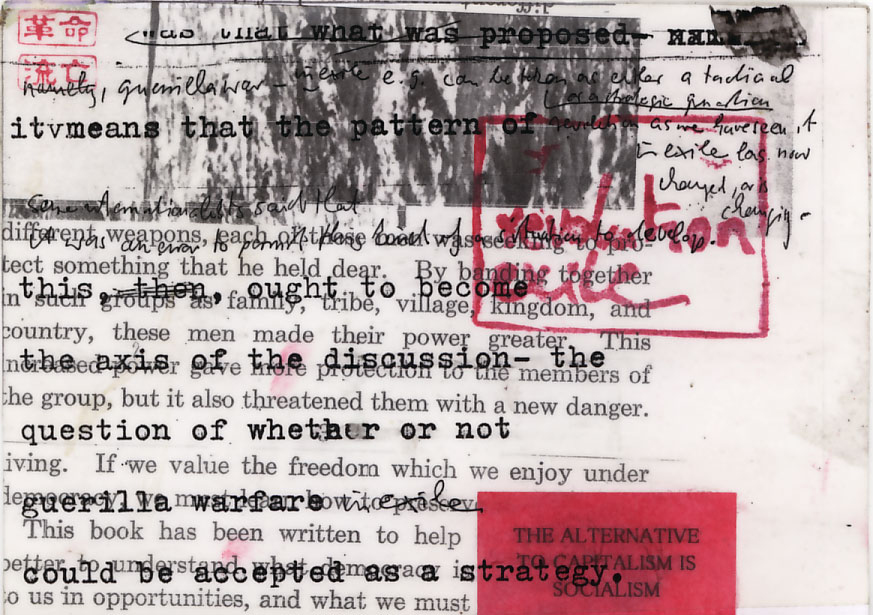 革命
流亡
was that what was proposed-
namely, guerilla war - in exile e.g. can be taken as either a tactical
or a strategic question
itvmeans that the pattern of
revolution as we have seen it
in exile has now
changed, or is
changing -
some internationalists said that
it was an error to permit this kind of a situation to develop.
revolution
exile
different weapons, each of these men was seeking to pro-
tect something that he held dear. By banding together
this, then, ought to become
in such groups as family, tribe, village, kingdom, and
country, these men made their power greater. This
the axis of the discussion- the
increased power gave more protection to the members of
the group, but it also threatened them with a new danger.
question of whether or not
iving. If we value the freedom which we enjoy under
democracy, we must learn how to preserv
guerilla warfare in exile
This book has been written to help
THE ALTERNATIVE
TO CAPITALISM IS
SOCIALISM
better to understand what democracy is
could be accepted as a strategy.
to us in opportunities, and what we must